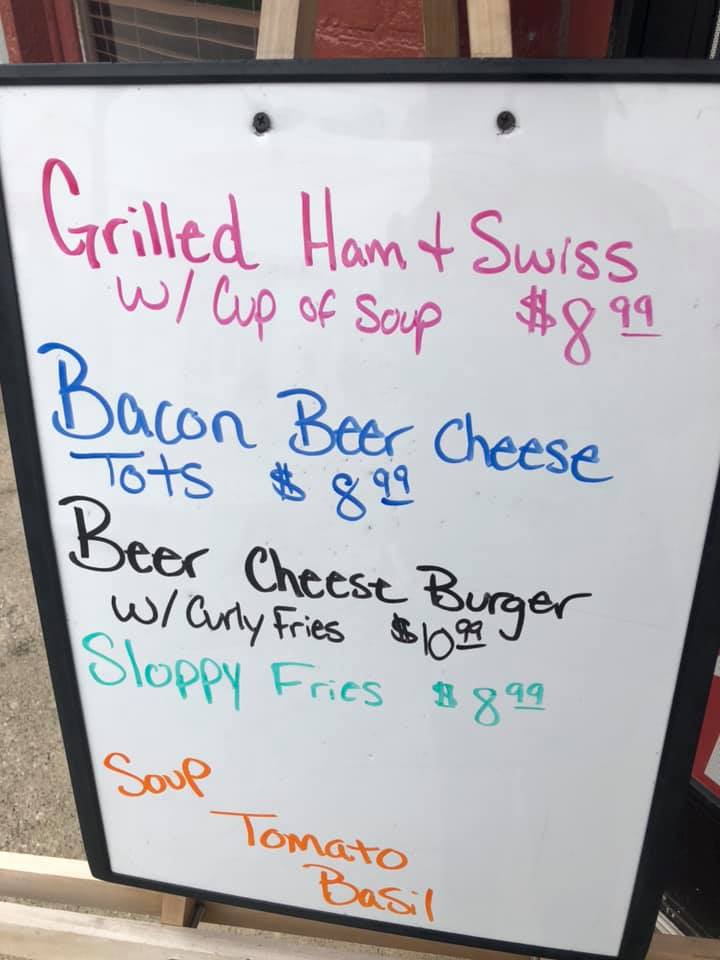 Grilled Ham + Swiss
w/ Cup of Soup $8.99
Bacon Beer Cheese
Tots $8.99
Beer Cheese Burger
w/ Curly Fries $10.99
Sloppy Fries $8.99
Soup
Tomato
Basil